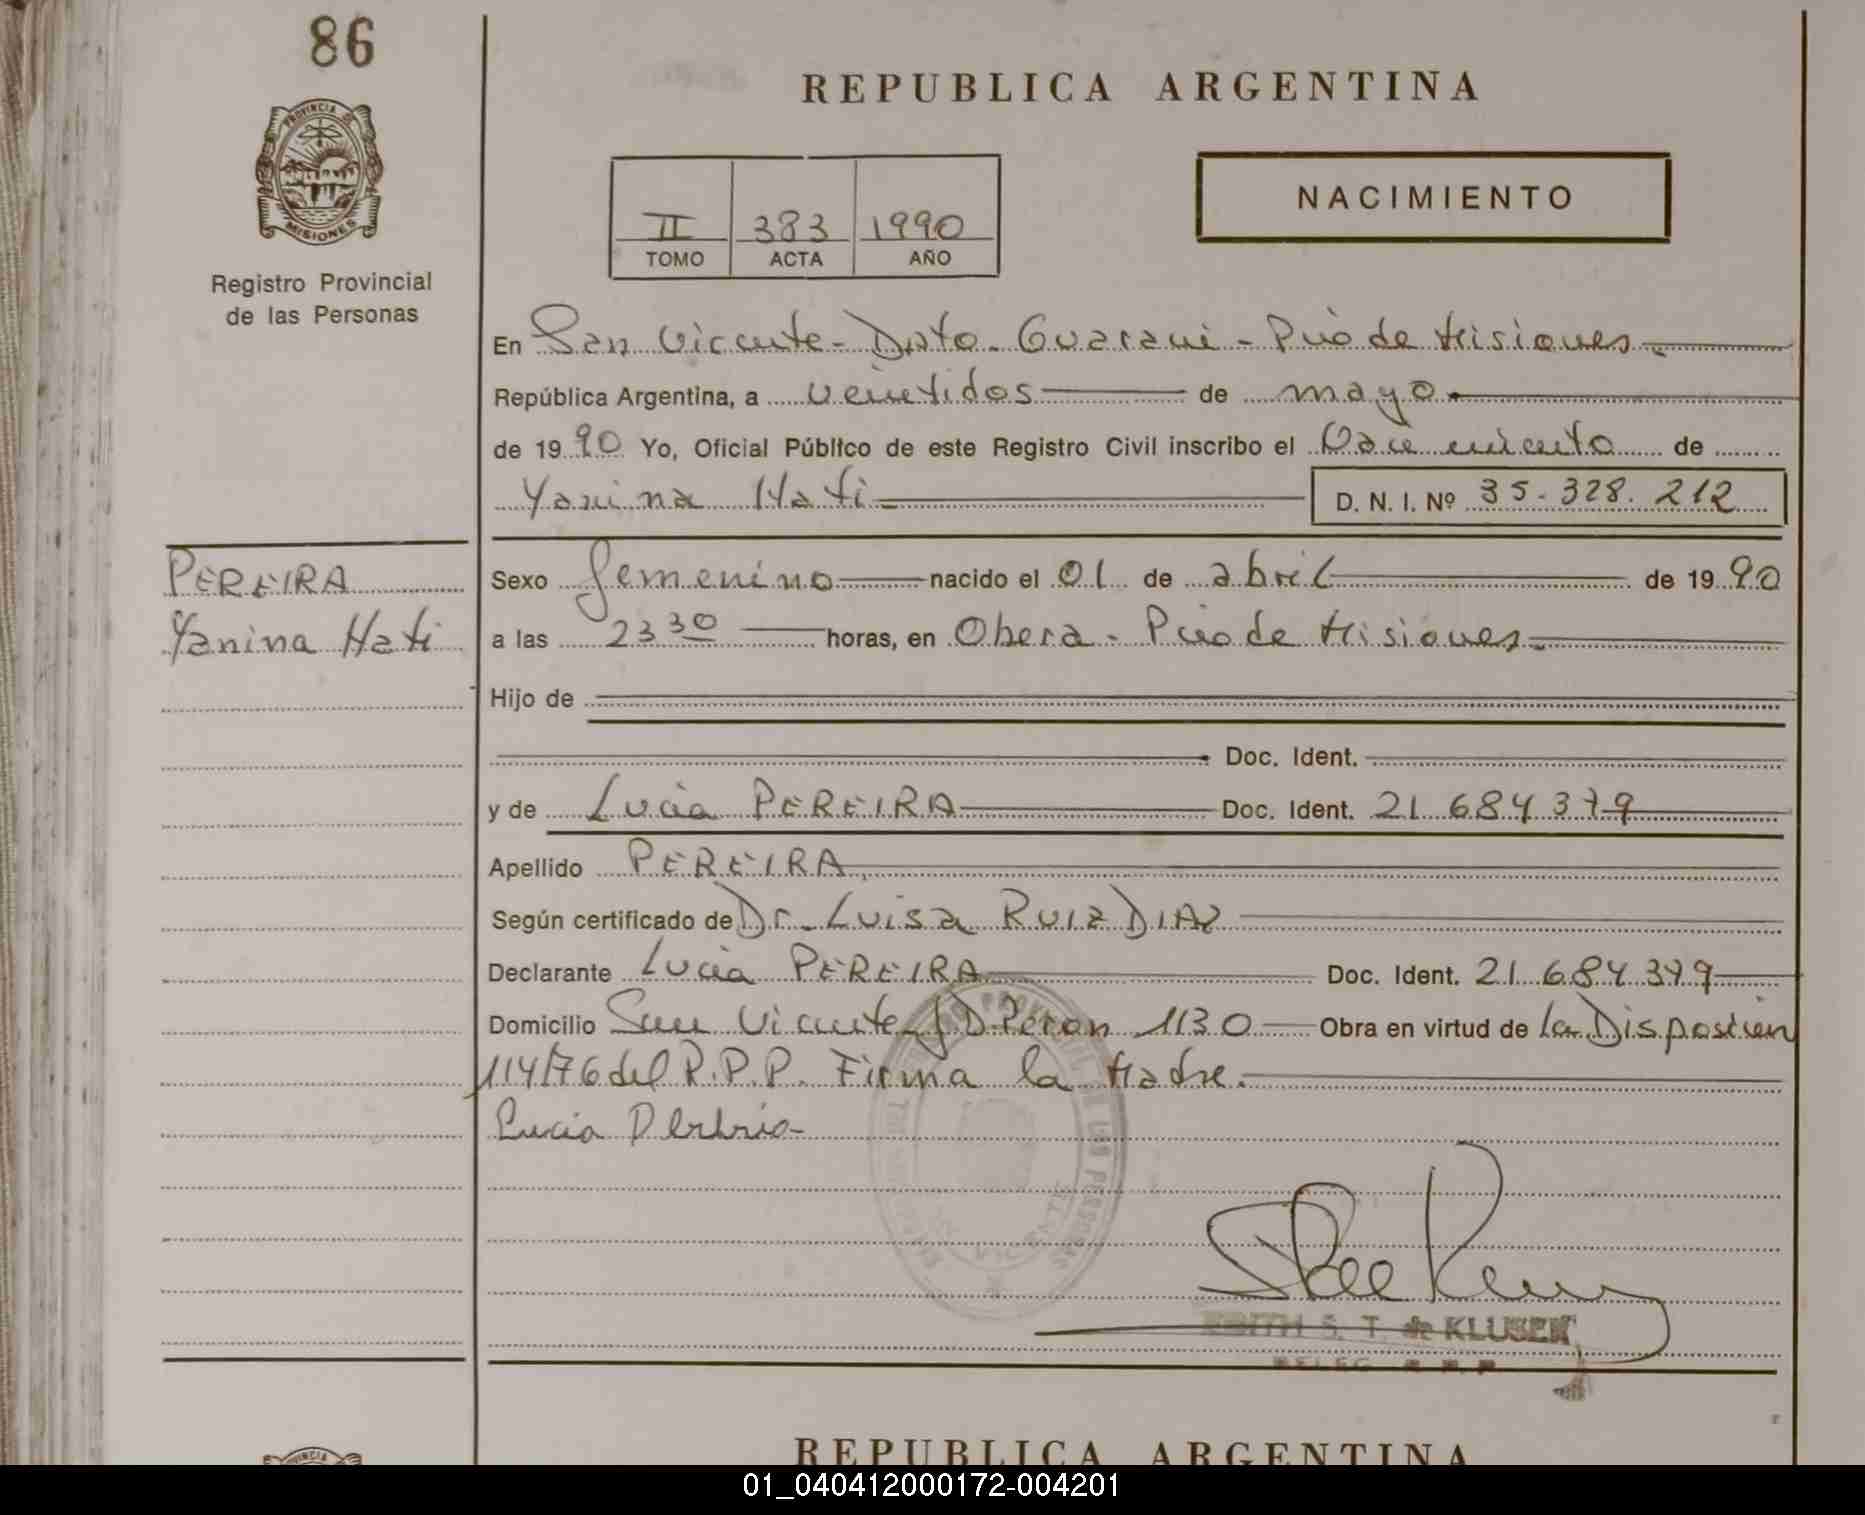 86
REPUBLICA ARGENTINA
PROVINCIA DE MISIONES
NACIMIENTO
II 383 1990
TOMO ACTA AÑO
Registro Provincial
de las Personas
En San Vicente - Dpto. Guarani - Pcia de Misiones.
República Argentina, a veintidos de mayo.
de 1990 Yo, Oficial Público de este Registro Civil inscribo el Nacimiento de
Yanina Hati D. N. I. Nº 35.328.212
PEREIRA
Yanina Hati
Sexo femenino nacido el 01 de abril de 1990
a las 23 30 horas, en Obera - Pcia de Misiones.
Hijo de
Doc. Ident.
y de Lucia PEREIRA Doc. Ident. 21.684.379
Apellido PEREIRA
Según certificado de Dr. Luisa RUIZ DIAZ
Declarante Lucia PEREIRA Doc. Ident. 21.684.379
Domicilio San Vicente J.D.Peron 1130 Obra en virtud de la Disposcien
114/76 del R.P.P. Firma la Madre.
Lucia
VICENTE
EDITH S. T. de KLUSEK
DELEG R.P.P
REPUBLICA ARGENTINA
01_040412000172-004201